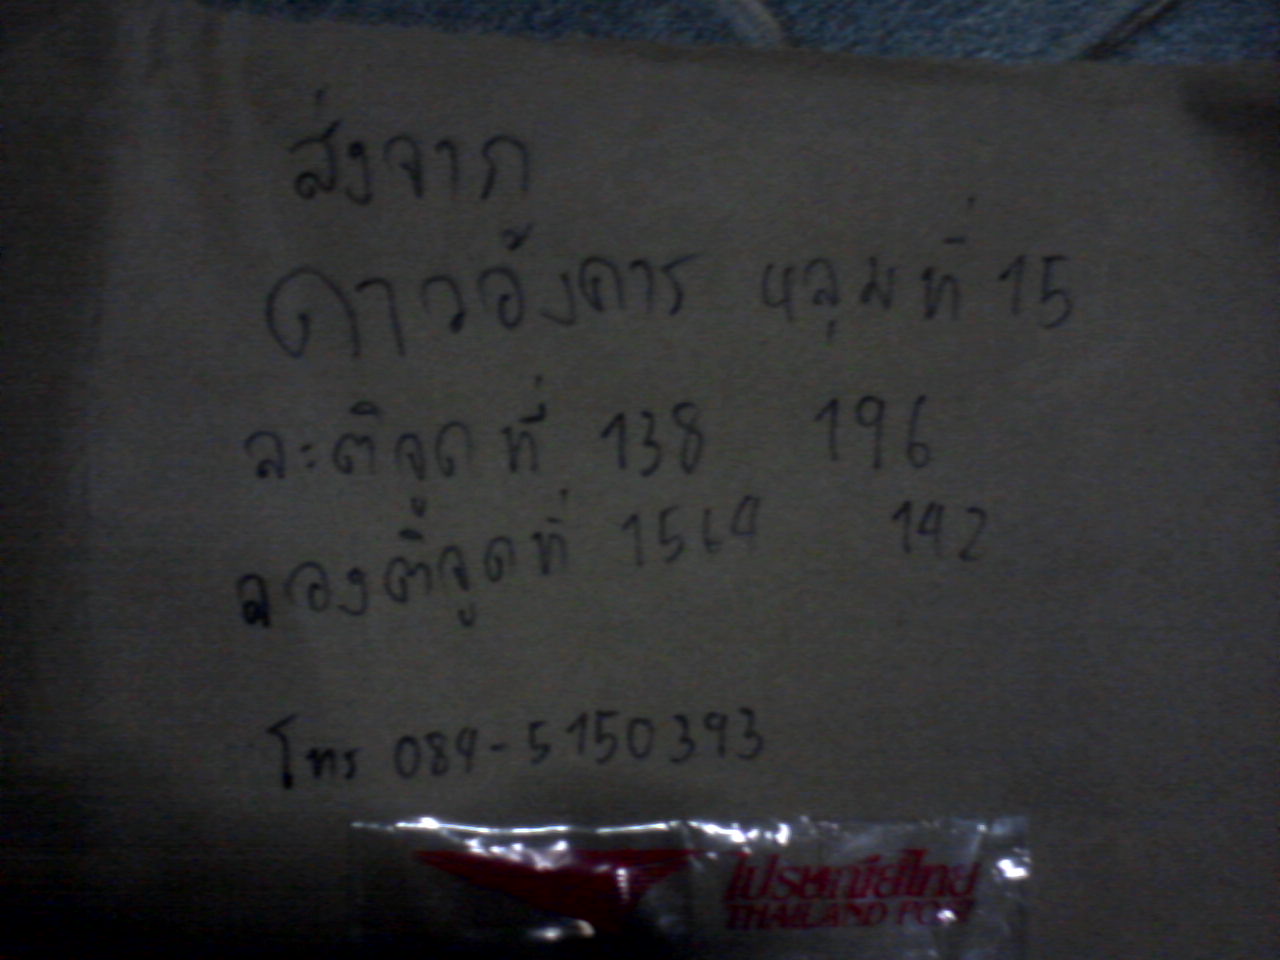 ส่งจาก
ดาวอังคาร หลุมที่ 15
ละติจูดที่ 138 196
ลองติจูดที่ 1564 142
โทร 084-5150393
ไปรษณีย์ไทย
THAILAND POST